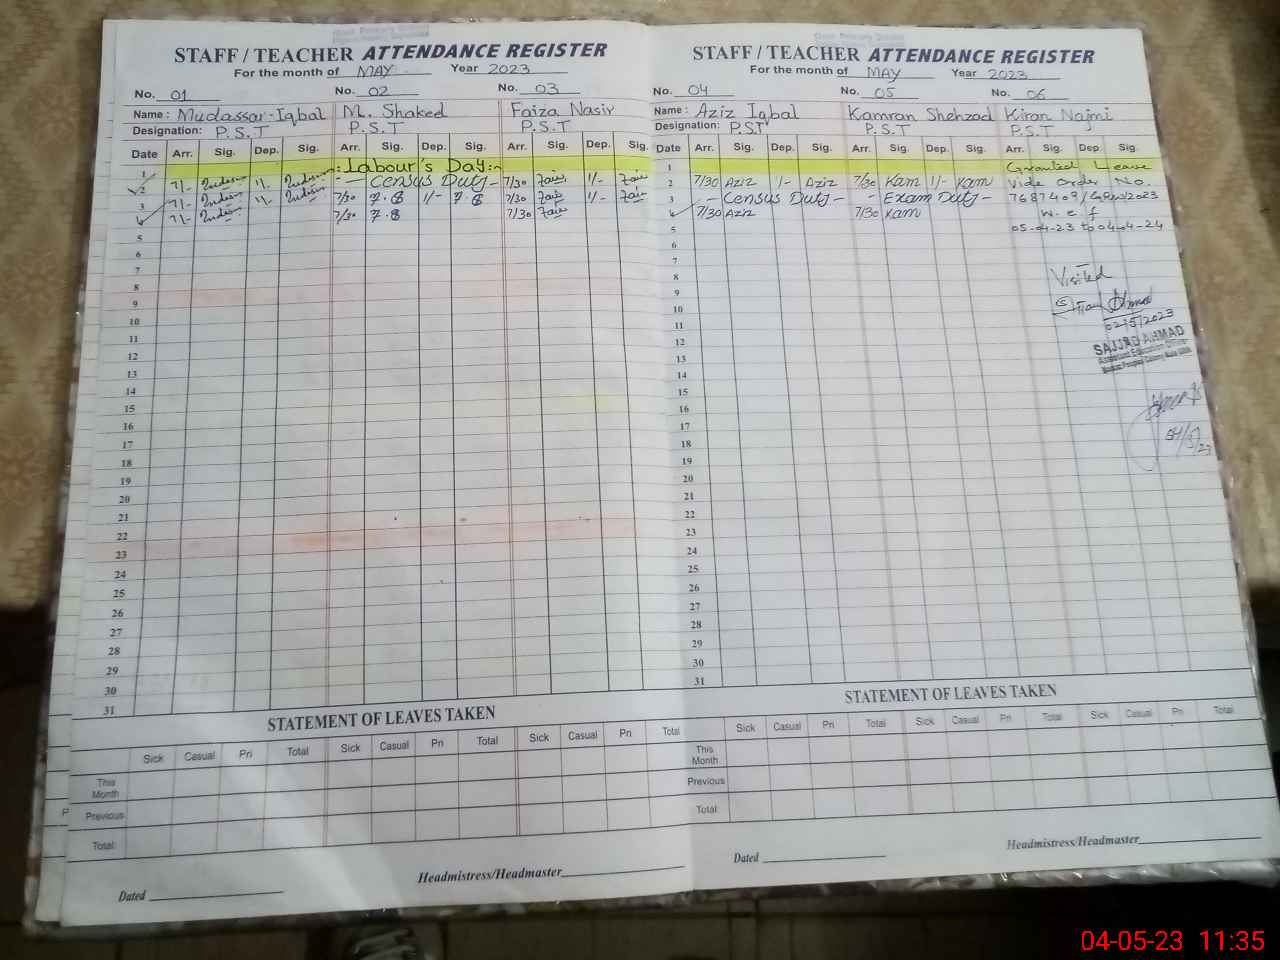 Govt. Primary School
STAFF / TEACHER ATTENDANCE REGISTER
For the month of MAY Year 2023
No. 01 No. 02 No. 03
Name : Mudassar Iqbal M. Shakeel Faiza Nasir
Designation: P.S.T P.S.T P.S.T
Date Arr. Sig. Dep. Sig. Arr. Sig. Dep. Sig. Arr. Sig. Dep. Sig.
1 :Labour's Day:-
2 7/- 1/- - Census Duty - 7/30 1/-
3 7/- 1/- 7/30 1/- 7/30 1/-
4 7/- 7/30 7/30
5
6
7
8
9
10
11
12
13
14
15
16
17
18
19
20
21
22
23
24
25
26
27
28
29
30
31
STATEMENT OF LEAVES TAKEN
Sick Casual Pri Total Sick Casual Pri Total Sick Casual Pri Total
This Month
Previous
Total:
Headmistress/Headmaster
Dated
Govt. Primary School
STAFF / TEACHER ATTENDANCE REGISTER
For the month of MAY Year 2023
No. 04 No. 05 No. 06
Name : Aziz Iqbal Kamran Shehzad Kiran Najmi
Designation: P.ST P.S.T P.S.T
Date Arr. Sig. Dep. Sig. Arr. Sig. Dep. Sig. Arr. Sig. Dep. Sig.
1 Granted Leave
2 7/30 Aziz 1/- Aziz 7/30 Kam 1/- Kam Vide Order No.
3 - Census Duty - - Exam Duty -
4 7/30 Aziz 7/30 Kam W.e.f
5 05-04-23 to 04-4-24
6
7
8 Visited
9
10
11 02/5/2023
12 SAJJAD AHMAD
13
14
15
16
17
18 04/5/23
19
20
21
22
23
24
25
26
27
28
29
30
31
STATEMENT OF LEAVES TAKEN
Sick Casual Pri Total Sick Casual Pri Total Sick Casual Pri Total
This Month
Previous
Total:
Headmistress/Headmaster
Dated
04-05-23 11:35